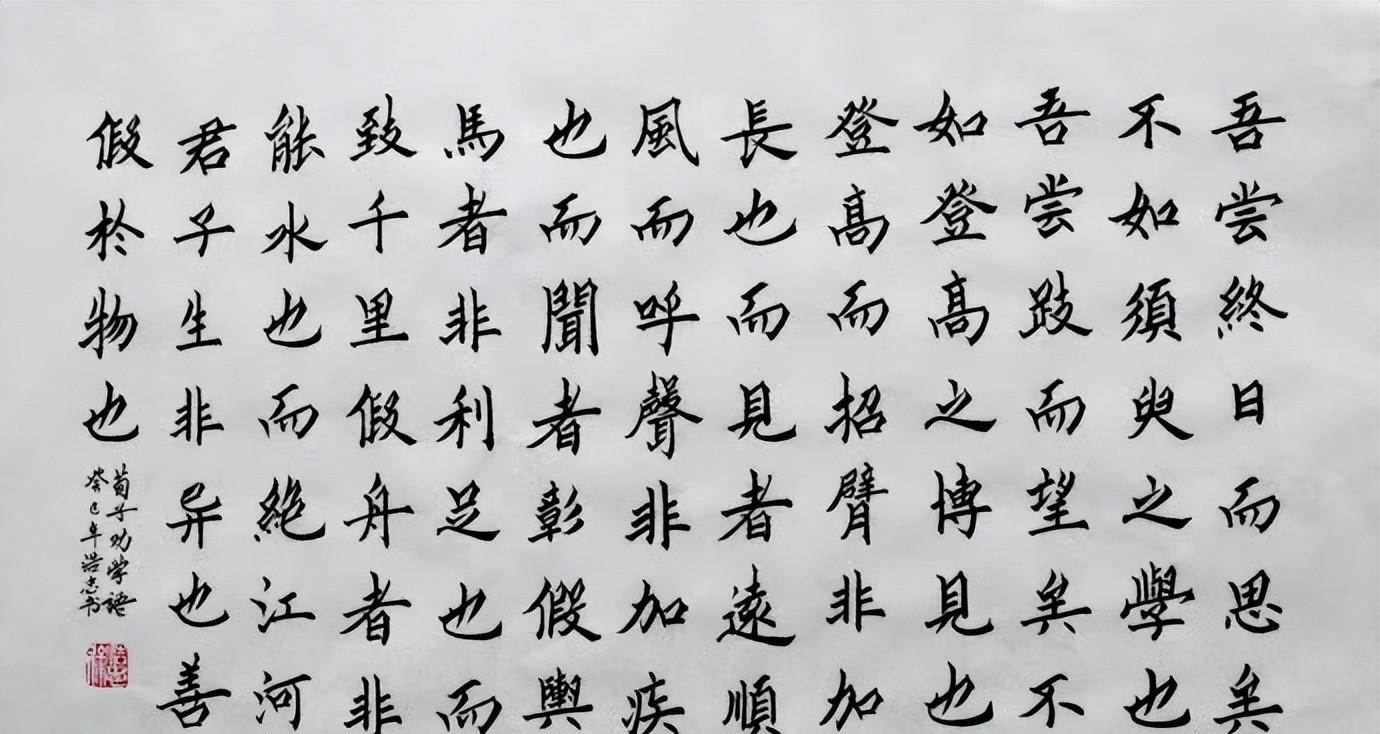 吾嘗終日而思矣
不如須臾之學也
吾嘗跂而望矣不
如登高之博見也
登高而招臂非加
長也而見者遠順
風而呼聲非加疾
也而聞者彰假輿
馬者非利足也而
致千里假舟者非
能水也而絶江河
君子生非异也善
假於物也
荀子劝学語
癸巳年浩志书